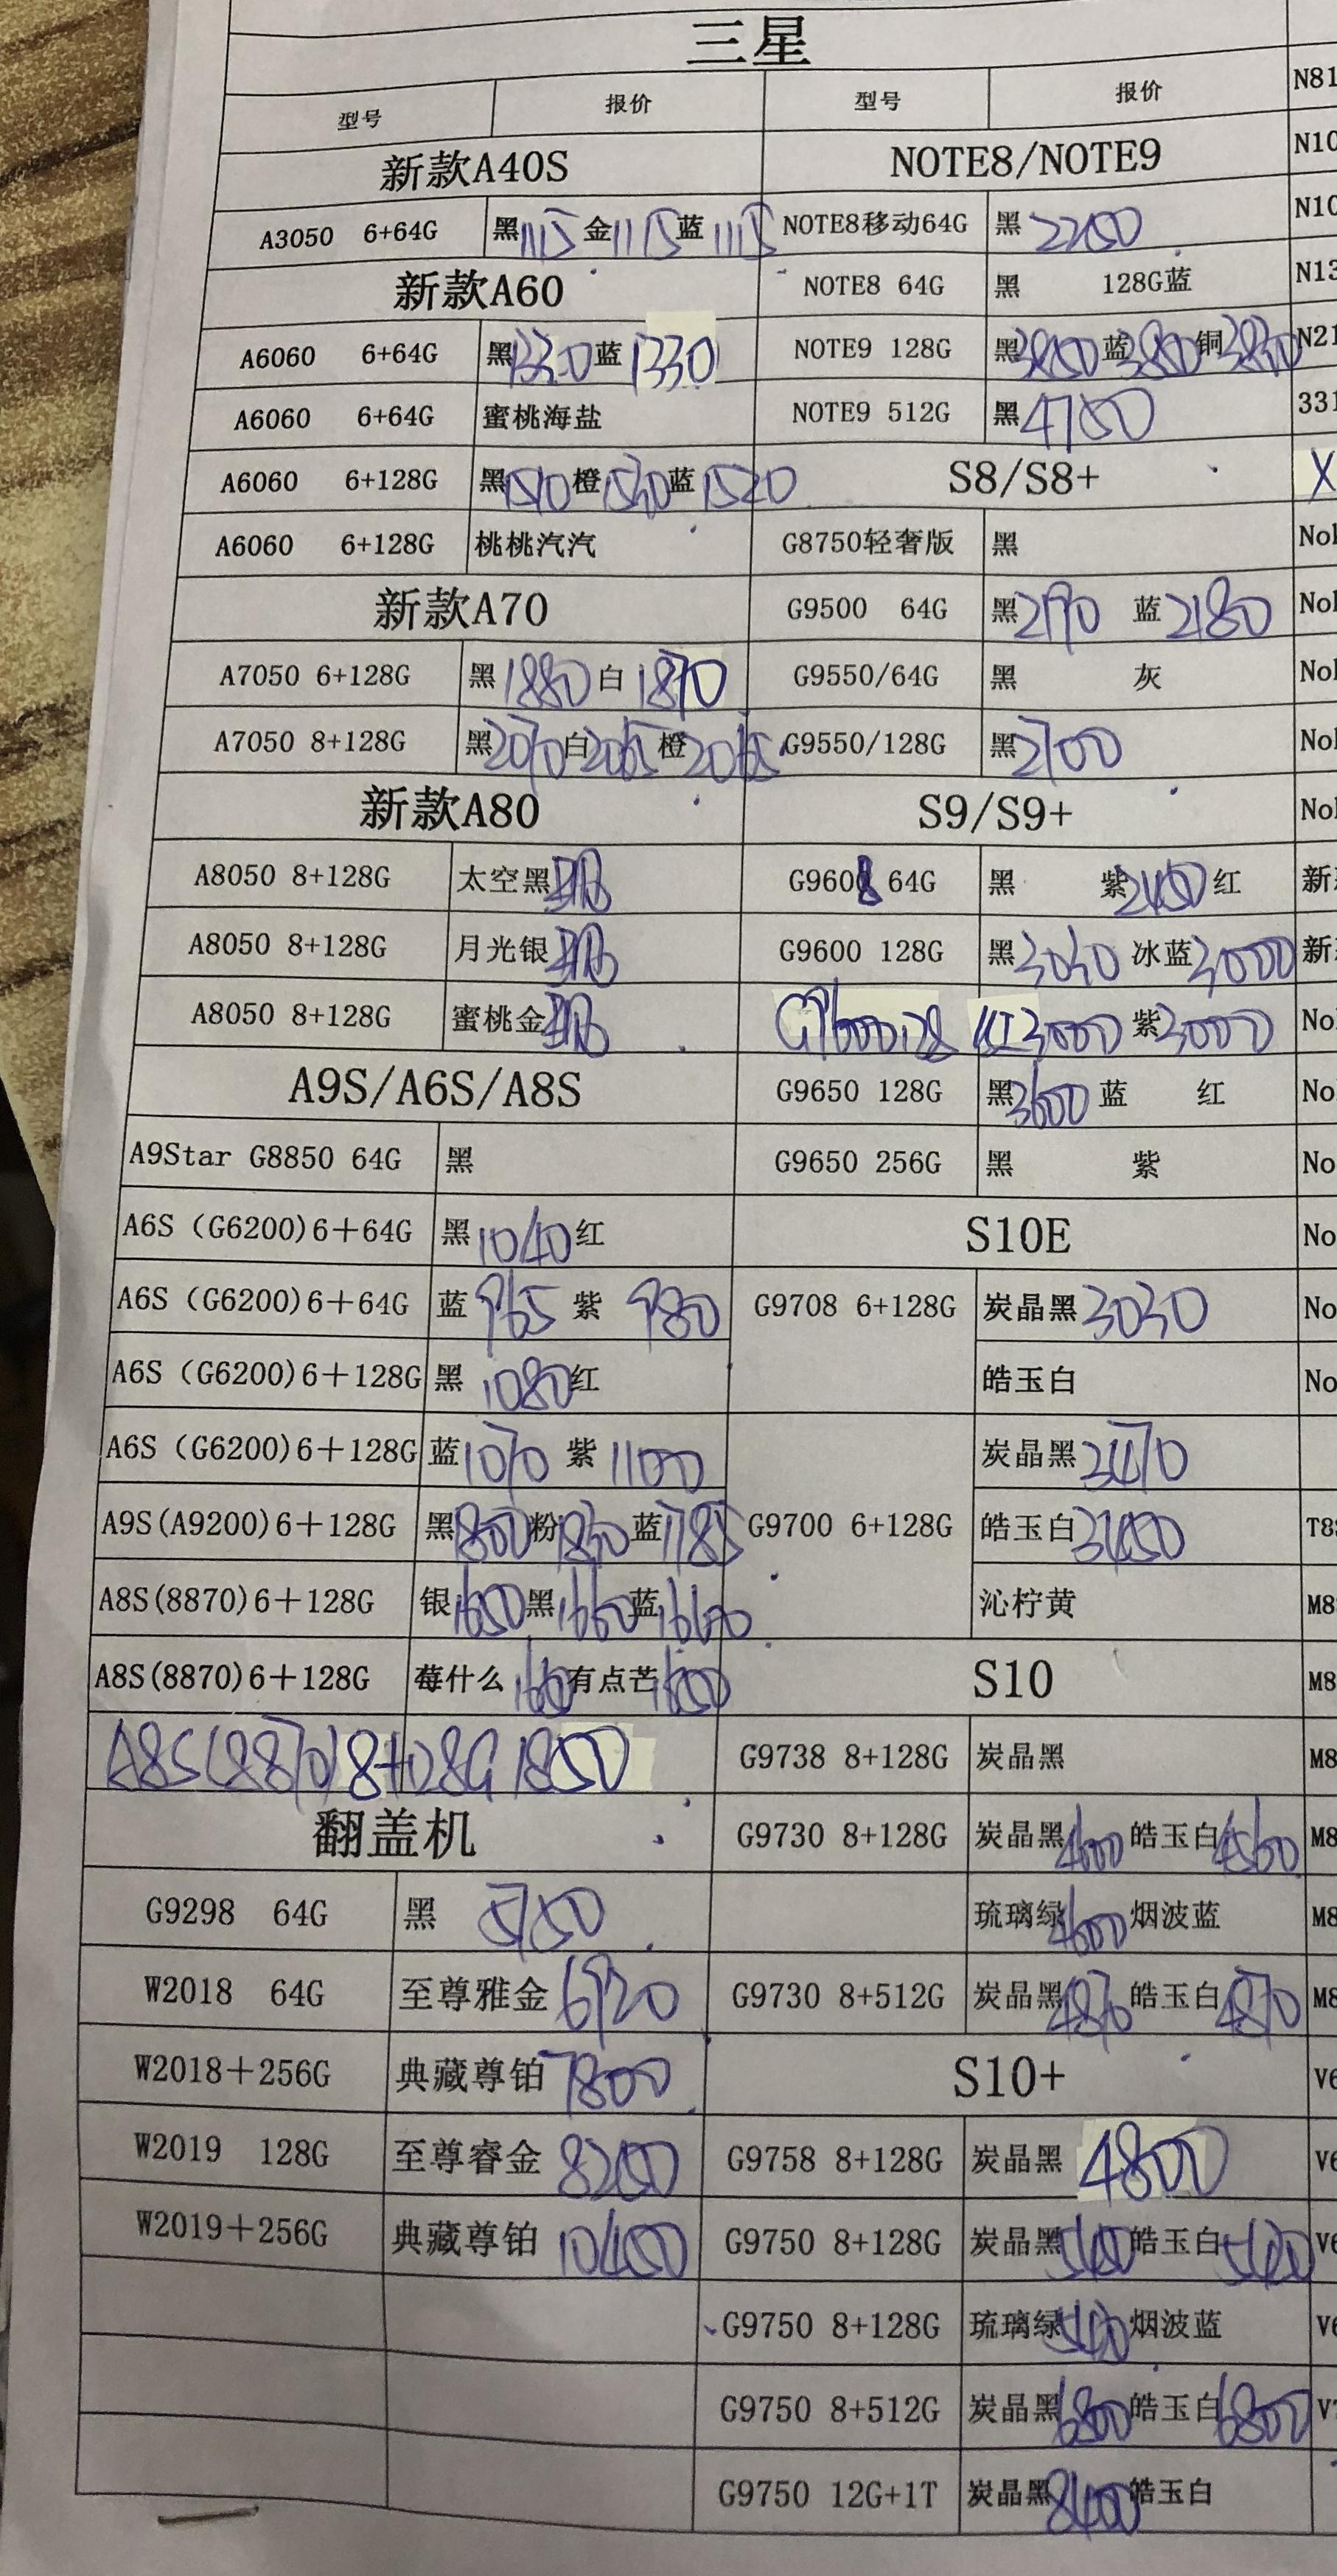 三星
型号 报价 型号 报价 N81
新款A40S NOTE8/NOTE9 N10
A3050 6+64G 黑1115 金1115 蓝1115 NOTE8移动64G 黑 N10
新款A60 NOTE8 64G 黑 128G蓝 N13
A6060 6+64G 黑1330 蓝1330 NOTE9 128G 黑3850 蓝3850 铜3830 N21
A6060 6+64G 蜜桃海盐 NOTE9 512G 黑4750 331
A6060 6+128G 黑1510 橙 蓝1520 S8/S8+ X
A6060 6+128G 桃桃汽汽 G8750轻奢版 黑 Nok
新款A70 G9500 64G 黑2190 蓝2180 Nok
A7050 6+128G 黑1880 白1870 G9550/64G 黑 灰 Nok
A7050 8+128G 黑2070 白2065 橙2065 G9550/128G 黑2700 Nok
新款A80 S9/S9+ Nok
A8050 8+128G 太空黑 G9608 64G 黑 紫2450 红 新
A8050 8+128G 月光银 G9600 128G 黑3030 冰蓝3000 新
A8050 8+128G 蜜桃金 G9600 128 红3000 紫3000 No
A9S/A6S/A8S G9650 128G 黑3600 蓝 红 No
A9Star G8850 64G 黑 G9650 256G 黑 紫 No
A6S (G6200)6+64G 黑1040 红 S10E No
A6S (G6200)6+64G 蓝965 紫980 G9708 6+128G 炭晶黑3030 No
A6S (G6200)6+128G 黑1080 红 皓玉白 No
A6S (G6200)6+128G 蓝1070 紫1100 炭晶黑3470
A9S(A9200)6+128G 黑1800 粉1830 蓝1785 G9700 6+128G 皓玉白3450 T8
A8S(8870)6+128G 银1650 黑1660 蓝1660 沁柠黄 M8
A8S(8870)6+128G 莓什么 有点芒 S10 M8
A8S(8870)8+128G 1850 G9738 8+128G 炭晶黑 M8
翻盖机 G9730 8+128G 炭晶黑4600 皓玉白4560 M8
G9298 64G 黑5750 琉璃绿4600 烟波蓝 M8
W2018 64G 至尊雅金6920 G9730 8+512G 炭晶黑4870 皓玉白4870 M8
W2018+256G 典藏尊铂7800 S10+ V6
W2019 128G 至尊睿金8200 G9758 8+128G 炭晶黑4800 V6
W2019+256G 典藏尊铂10450 G9750 8+128G 炭晶黑 皓玉白 V6
G9750 8+128G 琉璃绿 烟波蓝 V6
G9750 8+512G 炭晶黑6800 皓玉白6800 V
G9750 12G+1T 炭晶黑8400 皓玉白